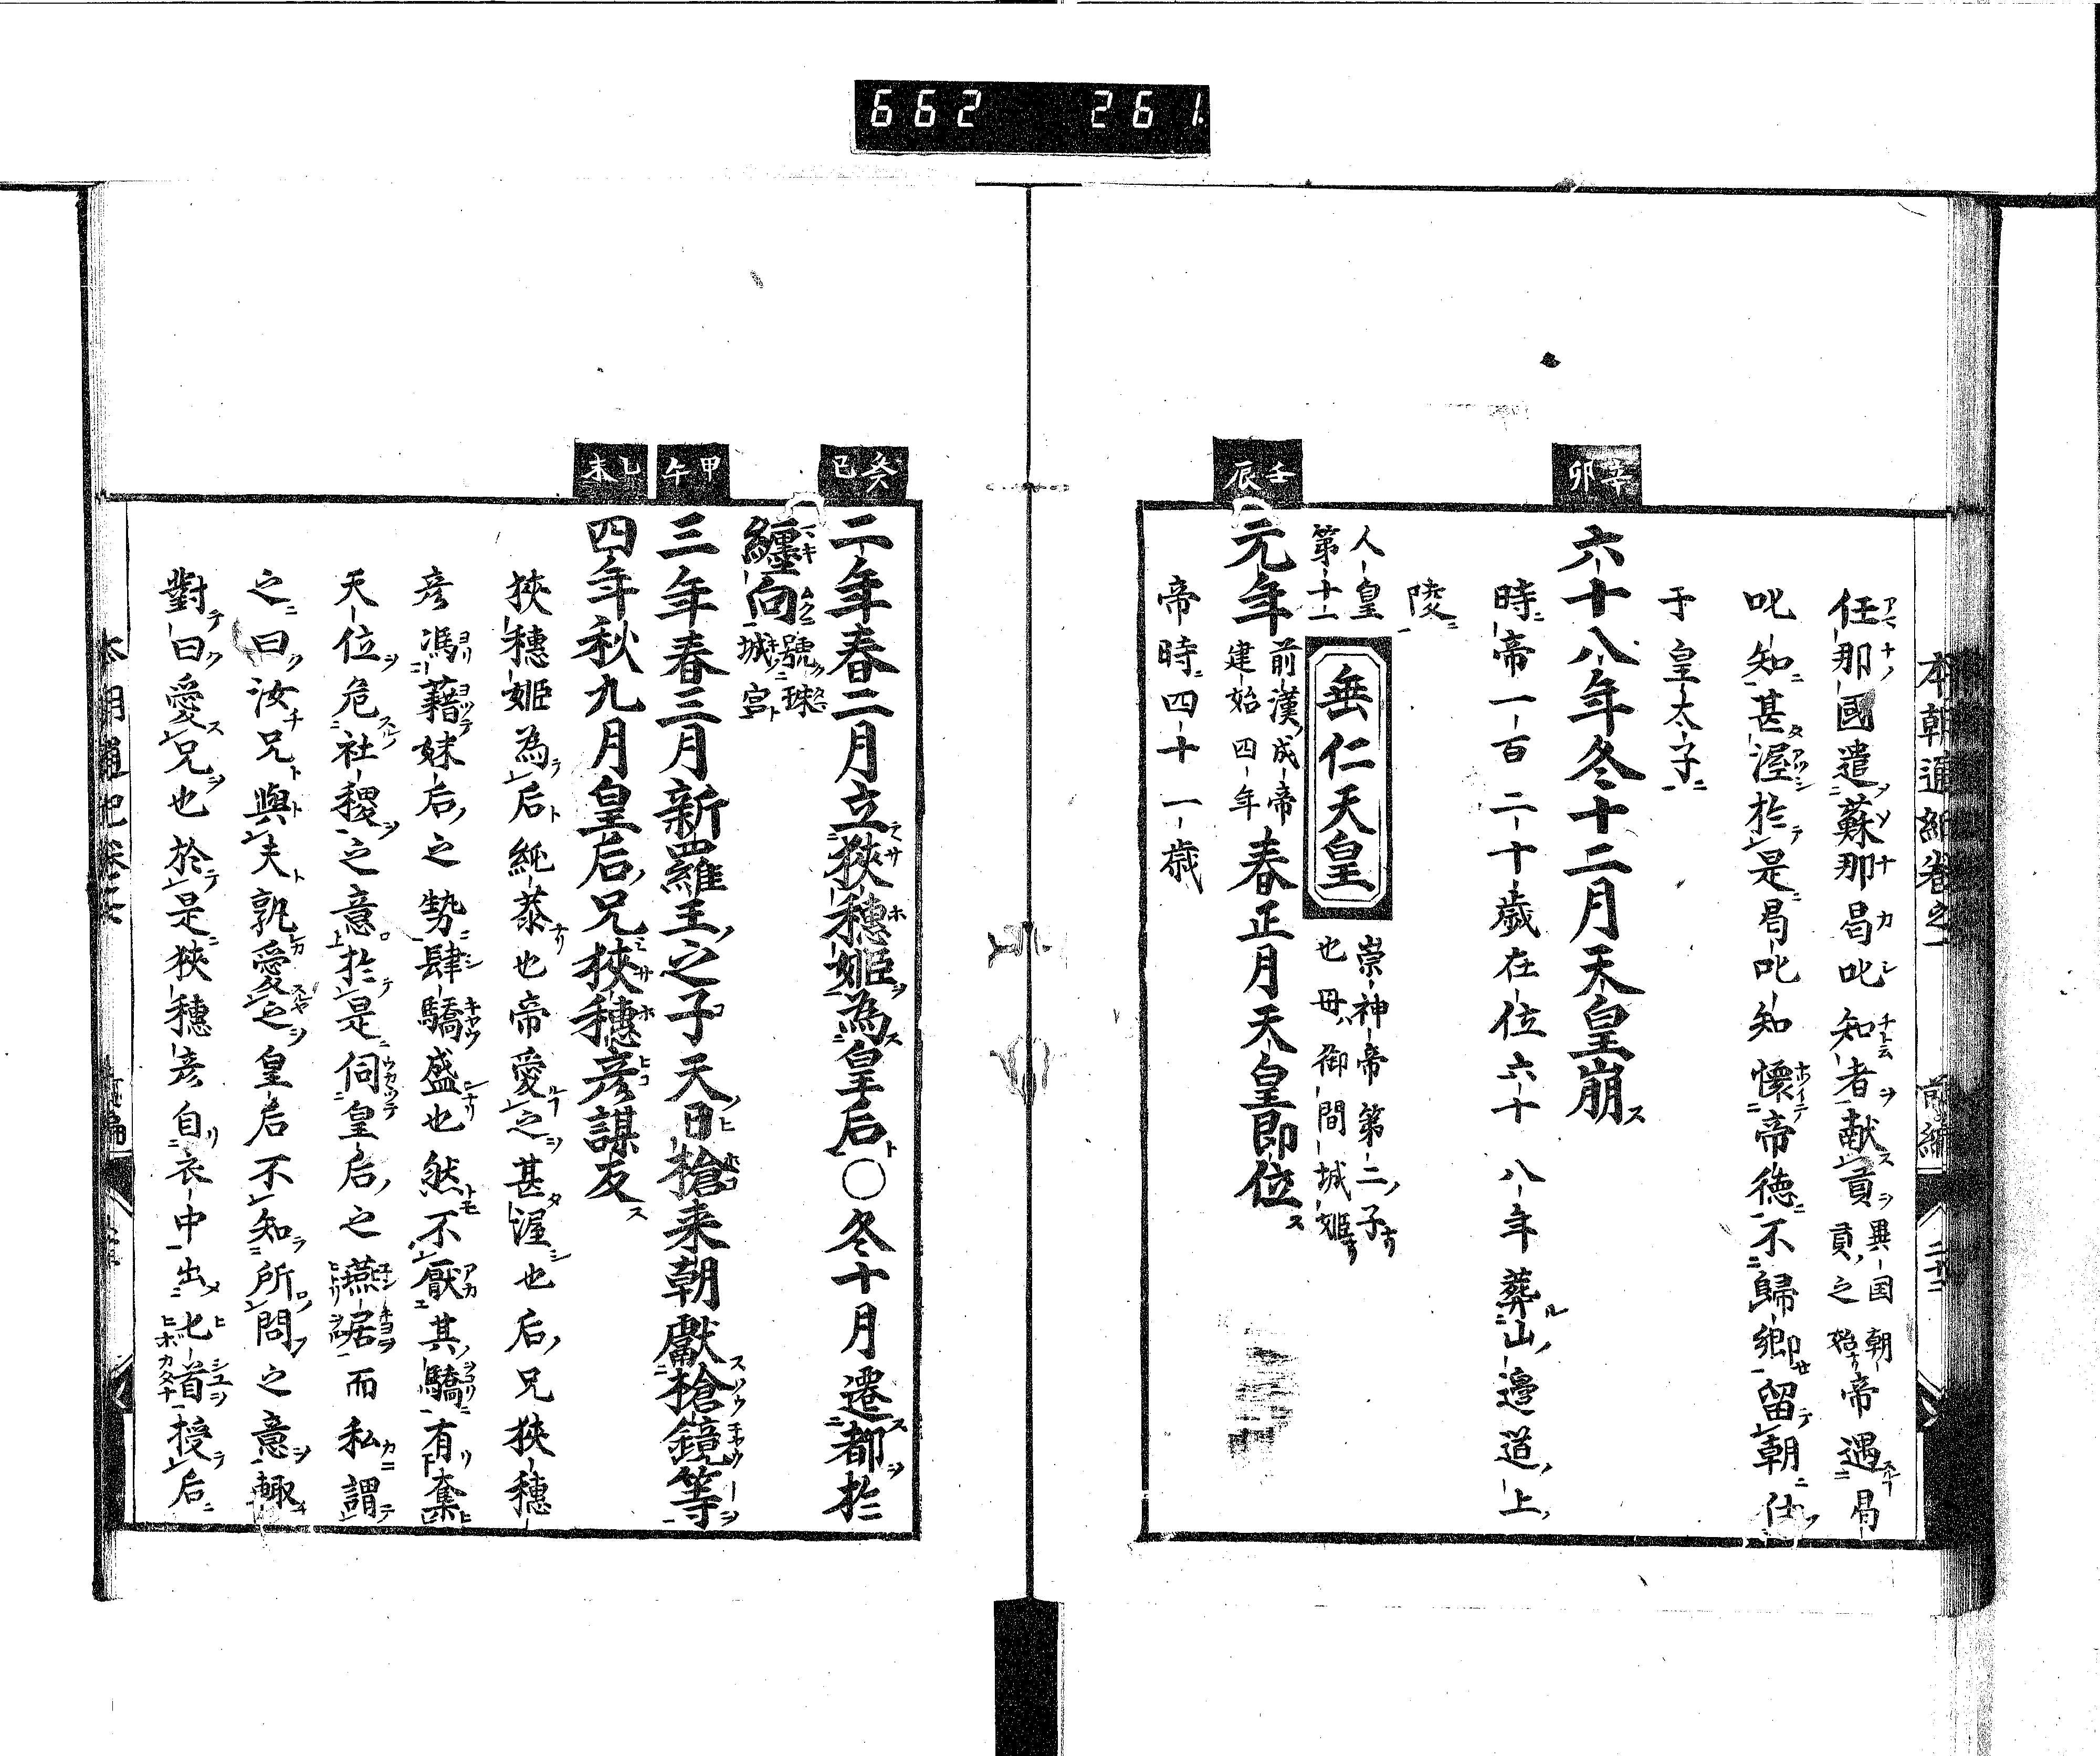 662 261
本朝通紀卷之一 前編
任那國遣蘇那曷叱知者献貢異国朝貢之始帝遇曷
叱知甚渥於是曷叱知懷帝徳不歸郷留朝仕
于皇太子
辛卯
六十八年冬十二月天皇崩
時帝一百二十歳在位六十八年葬山邊道上
陵
人皇第十一
垂仁天皇
崇神帝第二子也母御間城姫
壬辰
元年前漢成帝建始四年春正月天皇即位
帝時四十一歳
癸巳
二年春二月立狹穗姫為皇后〇冬十月遷都於
纏向號珠城宮
甲午
三年春三月新羅王之子天日槍来朝獻槍鏡等
乙未
四年秋九月皇后兄狹穗彦謀反
狹穗姫為后純恭也帝愛之甚渥也后兄狹穗
彦馮藉妹后之勢肆驕盛也然不厭其驕有奪
天位危社稷之意於是伺皇后之燕居而私謂
之曰汝兄與夫孰愛之皇后不知所問之意輙
對曰愛兄也於是狹穗彦自衣中出匕首授后